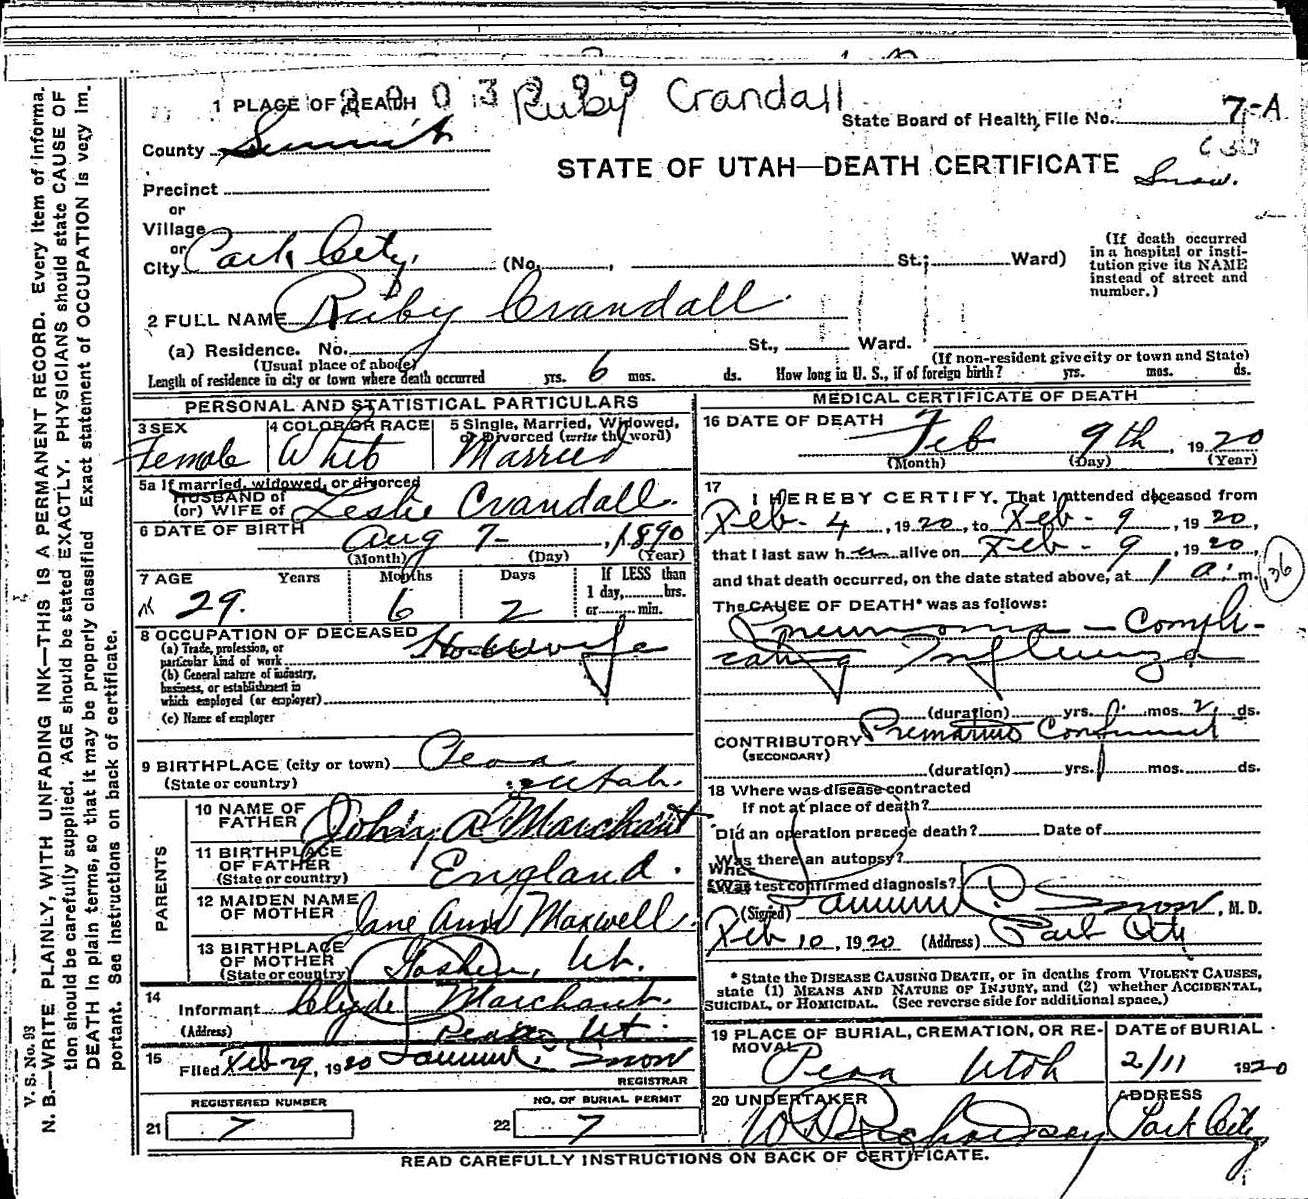 V. S. No. 93
N. B.—WRITE PLAINLY, WITH UNFADING INK—THIS IS A PERMANENT RECORD. Every item of informa-
tion should be carefully supplied. AGE should be stated EXACTLY. PHYSICIANS should state CAUSE OF
DEATH in plain terms, so that it may be properly classified. Exact statement of OCCUPATION is very im-
portant. See instructions on back of certificate.
Ruby Crandall
1 PLACE OF DEATH
State Board of Health, File No. 7-A
County Summit
STATE OF UTAH—DEATH CERTIFICATE
Snow.
Precinct
or
Village
or
City Park City. (No. , St.; Ward)
(If death occurred
in a hospital or insti-
tution give its NAME
instead of street and
number.)
2 FULL NAME Ruby Crandall
(a) Residence. No. St., Ward.
(Usual place of abode) (If non-resident give city or town and State)
Length of residence in city or town where death occurred yrs. 6 mos. ds. How long in U. S., if of foreign birth? yrs. mos. ds.
PERSONAL AND STATISTICAL PARTICULARS
3 SEX
Female
4 COLOR OR RACE
White
5 Single, Married, Widowed,
or Divorced (write the word)
Married
5a If married, widowed, or divorced
HUSBAND of
(or) WIFE of Leslie Crandall.
6 DATE OF BIRTH
Aug 7- , 1890
(Month) (Day) (Year)
7 AGE Years Months Days If LESS than
1 day, hrs.
or min.
29. 6 2
8 OCCUPATION OF DECEASED
(a) Trade, profession, or
particular kind of work Housewife
(b) General nature of industry,
business, or establishment in
which employed (or employer)
(c) Name of employer
9 BIRTHPLACE (city or town) Peoa
(State or country) Utah.
PARENTS
10 NAME OF
FATHER John A Marchant
11 BIRTHPLACE
OF FATHER
(State or country) England.
12 MAIDEN NAME
OF MOTHER Jane Ann Maxwell.
13 BIRTHPLACE
OF MOTHER
(State or country) Goshen, Ut.
14
Informant Clyde Marchant.
(Address) Peoa Ut.
15
Filed Feb 29, 1920 Snow
REGISTRAR
REGISTERED NUMBER
21 7
NO. OF BURIAL PERMIT
22 7
MEDICAL CERTIFICATE OF DEATH
16 DATE OF DEATH
Feb 9th, 1920
(Month) (Day) (Year)
17
I HEREBY CERTIFY, That I attended deceased from
Feb - 4, 1920, to Feb - 9, 1920,
that I last saw her alive on Feb - 9, 1920,
and that death occurred, on the date stated above, at 1 a. m.
136
The CAUSE OF DEATH* was as follows:
Pneumonia — Compli-
cating Influenza
(duration) yrs. mos. 2 ds.
CONTRIBUTORY Premature Confinement
(SECONDARY)
(duration) yrs. mos. ds.
18 Where was disease contracted
If not at place of death?
Did an operation precede death? Date of
Was there an autopsy?
What test confirmed diagnosis?
(Signed) Snow, M. D.
Feb 10, 1920 (Address) Park City
* State the DISEASE CAUSING DEATH, or in deaths from VIOLENT CAUSES,
state (1) MEANS AND NATURE OF INJURY, and (2) whether ACCIDENTAL,
SUICIDAL, OR HOMICIDAL. (See reverse side for additional space.)
19 PLACE OF BURIAL, CREMATION, OR RE-
MOVAL
Peoa Utah
DATE of BURIAL
2/11 1920
20 UNDERTAKER
ADDRESS
Park City
READ CAREFULLY INSTRUCTIONS ON BACK OF CERTIFICATE.